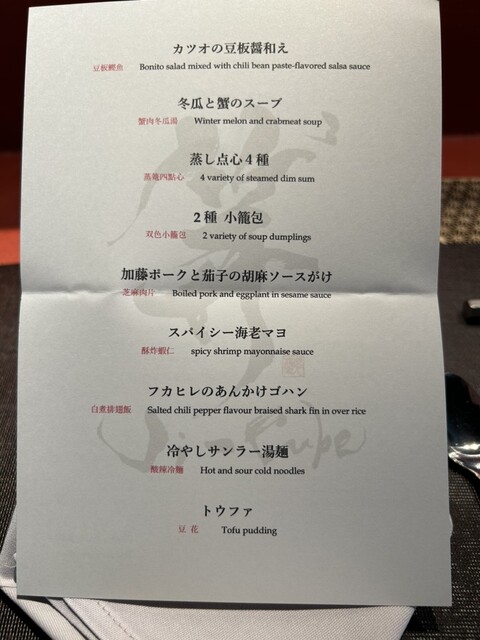 カツオの豆板醤和え
豆板鰹魚 Bonito salad mixed with chili bean paste-flavored salsa sauce
冬瓜と蟹のスープ
蟹肉冬瓜湯 Winter melon and crabmeat soup
蒸し点心4種
蒸籠四點心 4 variety of steamed dim sum
2種 小籠包
双色小籠包 2 variety of soup dumplings
加藤ポークと茄子の胡麻ソースがけ
芝麻肉片 Boiled pork and eggplant in sesame sauce
スパイシー海老マヨ
酥炸蝦仁 spicy shrimp mayonnaise sauce
フカヒレのあんかけゴハン
白煮排翅飯 Salted chili pepper flavour braised shark fin in over rice
冷やしサンラー湯麺
酸辣冷麺 Hot and sour cold noodles
トウファ
豆 花 Tofu pudding